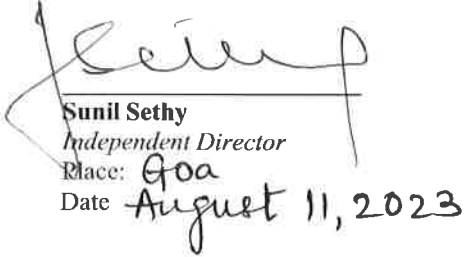 Sunil Sethy
Independent Director
Place: Goa
Date August 11, 2023